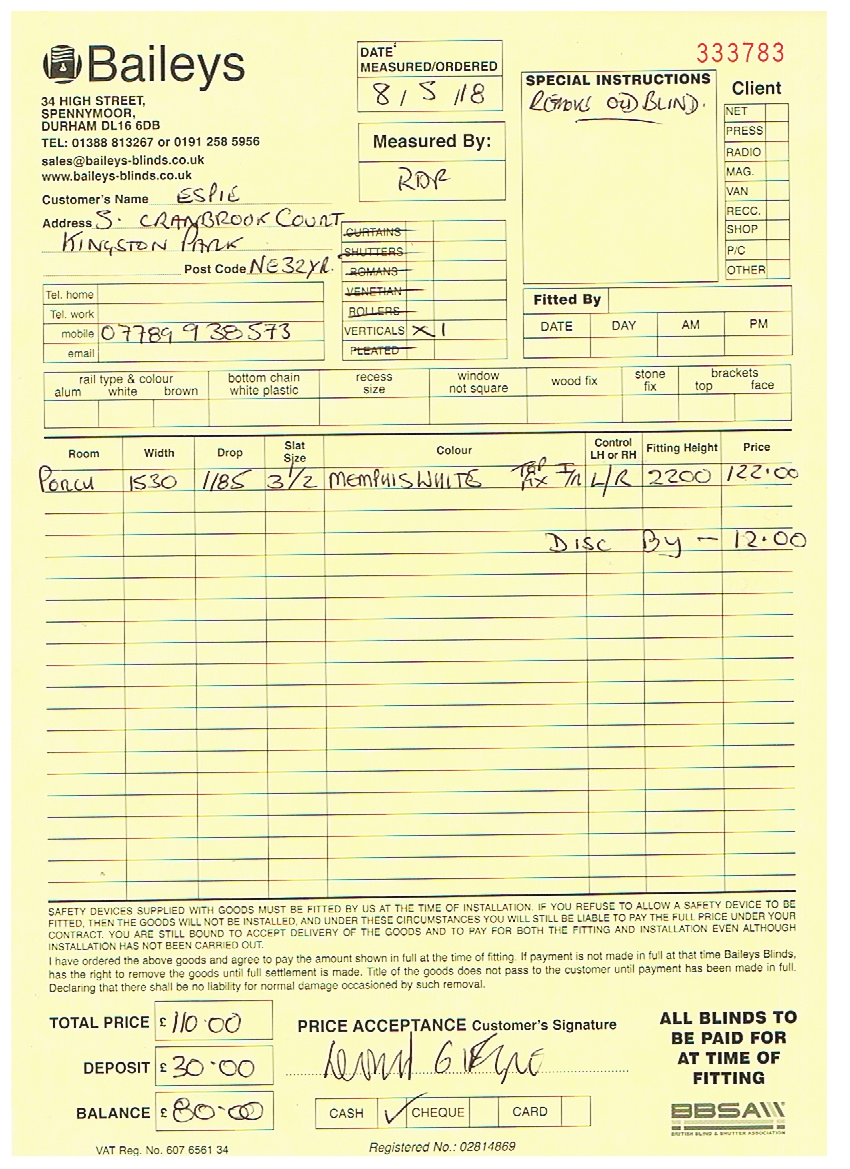 Baileys
34 HIGH STREET,
SPENNYMOOR,
DURHAM DL16 6DB
TEL: 01388 813267 or 0191 258 5956
sales@baileys-blinds.co.uk
www.baileys-blinds.co.uk
Customer's Name ESPIE
Address 5. CRANBROOK COURT
KINGSTON PARK
Post Code NE32YR.
Tel. home
Tel. work
mobile 07789 938573
email
DATE
MEASURED/ORDERED
8/5/18
Measured By:
RDR
CURTAINS
SHUTTERS
ROMANS
VENETIAN
ROLLERS
VERTICALS X1
PLEATED
333783
SPECIAL INSTRUCTIONS
REMOVE OLD BLIND.
Client
NET
PRESS
RADIO
MAG.
VAN
RECC.
SHOP
P/C
OTHER
Fitted By
DATE DAY AM PM
rail type & colour
alum white brown
bottom chain
white plastic
recess
size
window
not square
wood fix
stone
fix
brackets
top face
Room Width Drop Slat Size Colour Control LH or RH Fitting Height Price
PORCH 1530 1185 3½ MEMPHIS WHITE TOP FIX I/R L/R 2200 122.00
DISC BY - 12.00
SAFETY DEVICES SUPPLIED WITH GOODS MUST BE FITTED BY US AT THE TIME OF INSTALLATION. IF YOU REFUSE TO ALLOW A SAFETY DEVICE TO BE
FITTED, THEN THE GOODS WILL NOT BE INSTALLED, AND UNDER THESE CIRCUMSTANCES YOU WILL STILL BE LIABLE TO PAY THE FULL PRICE UNDER YOUR
CONTRACT. YOU ARE STILL BOUND TO ACCEPT DELIVERY OF THE GOODS AND TO PAY FOR BOTH THE FITTING AND INSTALLATION EVEN ALTHOUGH
INSTALLATION HAS NOT BEEN CARRIED OUT.
I have ordered the above goods and agree to pay the amount shown in full at the time of fitting. If payment is not made in full at that time Baileys Blinds,
has the right to remove the goods until full settlement is made. Title of the goods does not pass to the customer until payment has been made in full.
Declaring that there shall be no liability for normal damage occasioned by such removal.
TOTAL PRICE £ 110.00
DEPOSIT £ 30.00
BALANCE £ 80.00
PRICE ACCEPTANCE Customer's Signature
CASH ✓ CHEQUE CARD
ALL BLINDS TO
BE PAID FOR
AT TIME OF
FITTING
BBSA
BRITISH BLIND & SHUTTER ASSOCIATION
VAT Reg. No. 607 6561 34
Registered No.: 02814869